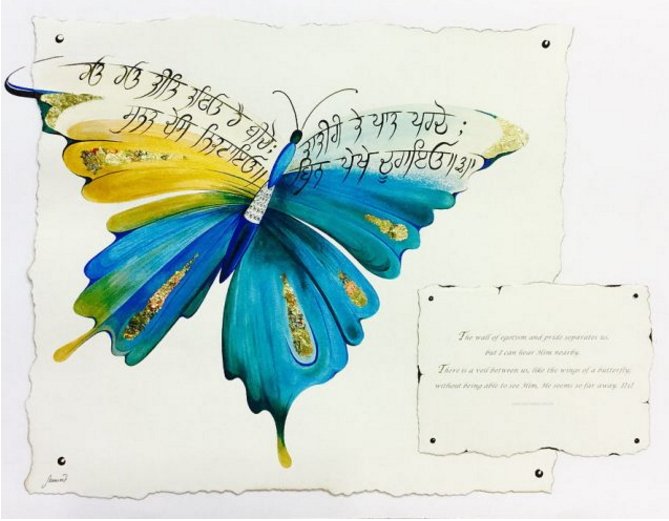 ਹਉ ਹਉ ਭੀਤਿ ਭਇਓ ਹੈ ਬੀਚੋ;
ਸੁਨਤ ਦੇਸਿ ਨਿਕਟਾਇਓ॥
ਭਾਂਭੀਰੀ ਕੇ ਪਾਤ ਪਰਦੋ ;
ਬਿਨੁ ਪੇਖੇ ਦੂਰਾਇਓ॥੩॥
The wall of egotism and pride separates us,
but I can hear Him nearby.
There is a veil between us, like the wings of a butterfly;
without being able to see Him, He seems so far away. ||3||